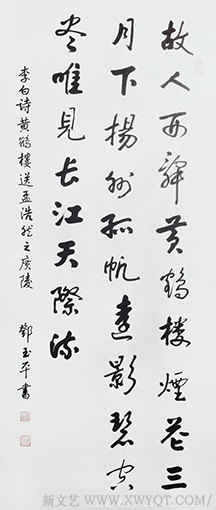 故人西辞黄鹤楼烟花三
月下揚州孤帆遠影碧空
尽唯見长江天際流
李白诗黄鹤樓送孟浩然之广陵
鄧玉平書
新文艺 WWW.XWYQT.COM